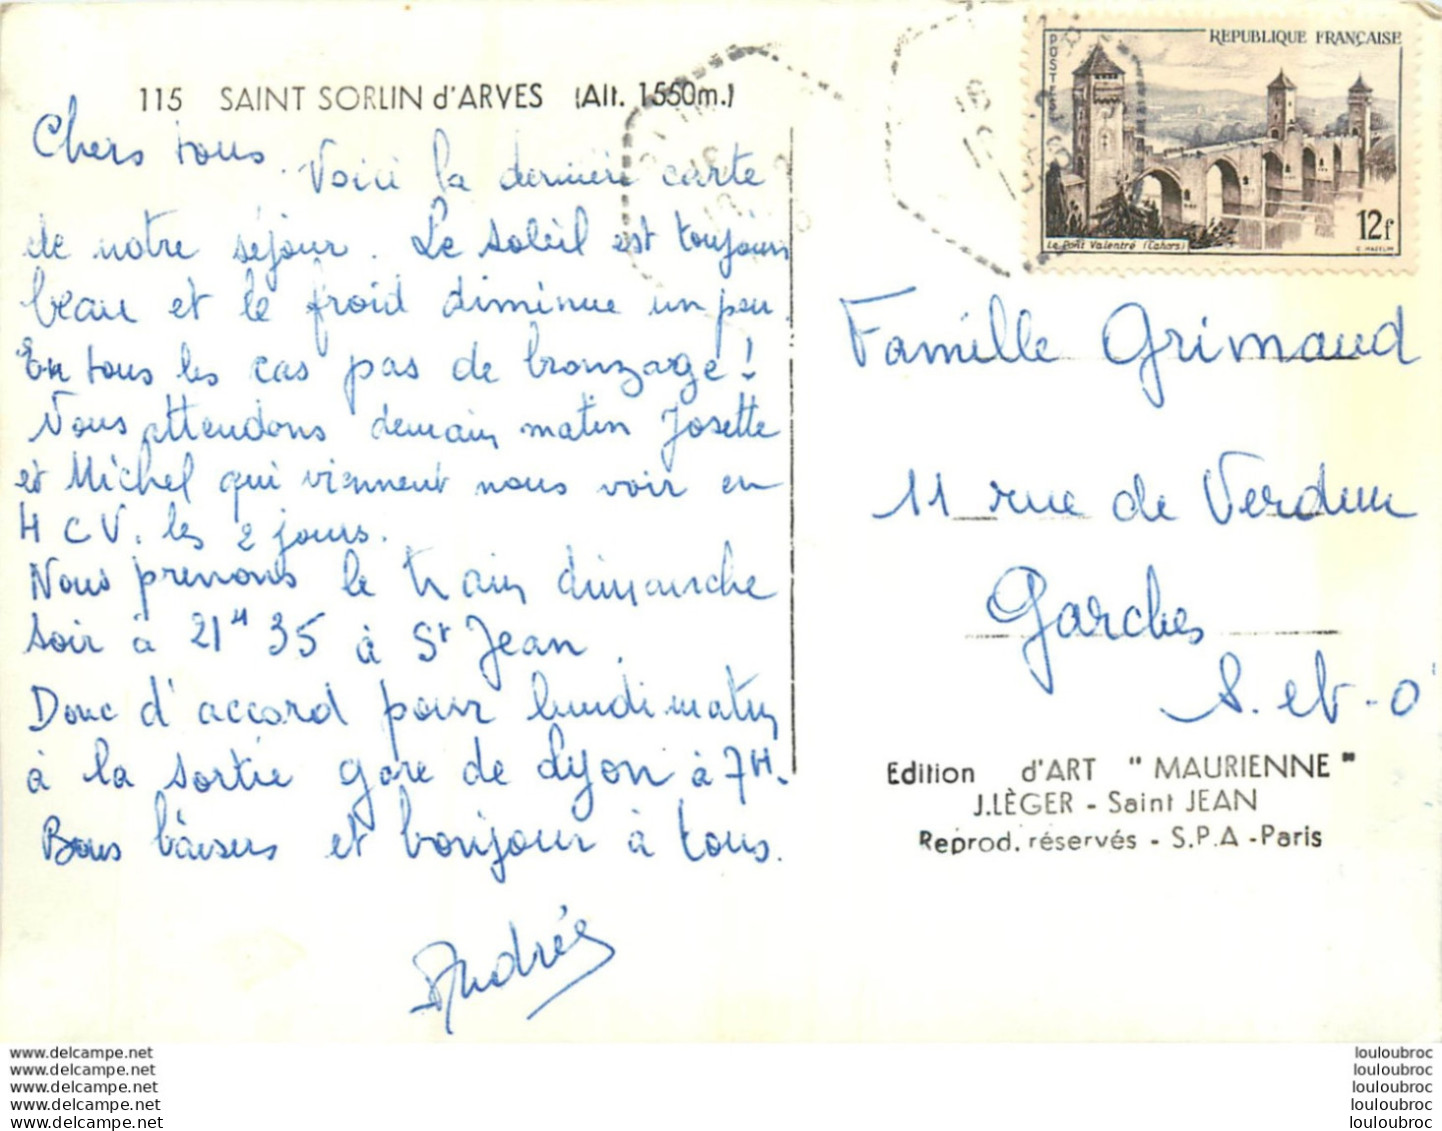 115 SAINT SORLIN d'ARVES (Alt. 1550m.)
Chers tous.
Voici la dernière carte
de notre séjour. Le soleil est toujours
beau et le froid diminue un peu.
En tous les cas pas de bronzage !
Nous attendons demain matin Josette
et Michel qui viennent nous voir en
4 CV. les 2 jours.
Nous prenons le train dimanche
soir à 21H 35 à St Jean.
Donc d'accord pour lundi matin
à la sortie gare de Lyon à 7H.
Bons baisers et bonjour à tous.
Andrée
REPUBLIQUE FRANÇAISE
POSTES
12f
Le Pont Valentré (Cahors)
Famille Grimaud
11 rue de Verdun
Garches
S. et-O
Edition d'ART "MAURIENNE"
J.LÈGER - Saint JEAN
Reprod. réservés - S.P.A -Paris
www.delcampe.net
www.delcampe.net
www.delcampe.net
www.delcampe.net
www.delcampe.net
louloubroc
louloubroc
louloubroc
louloubroc
louloubroc